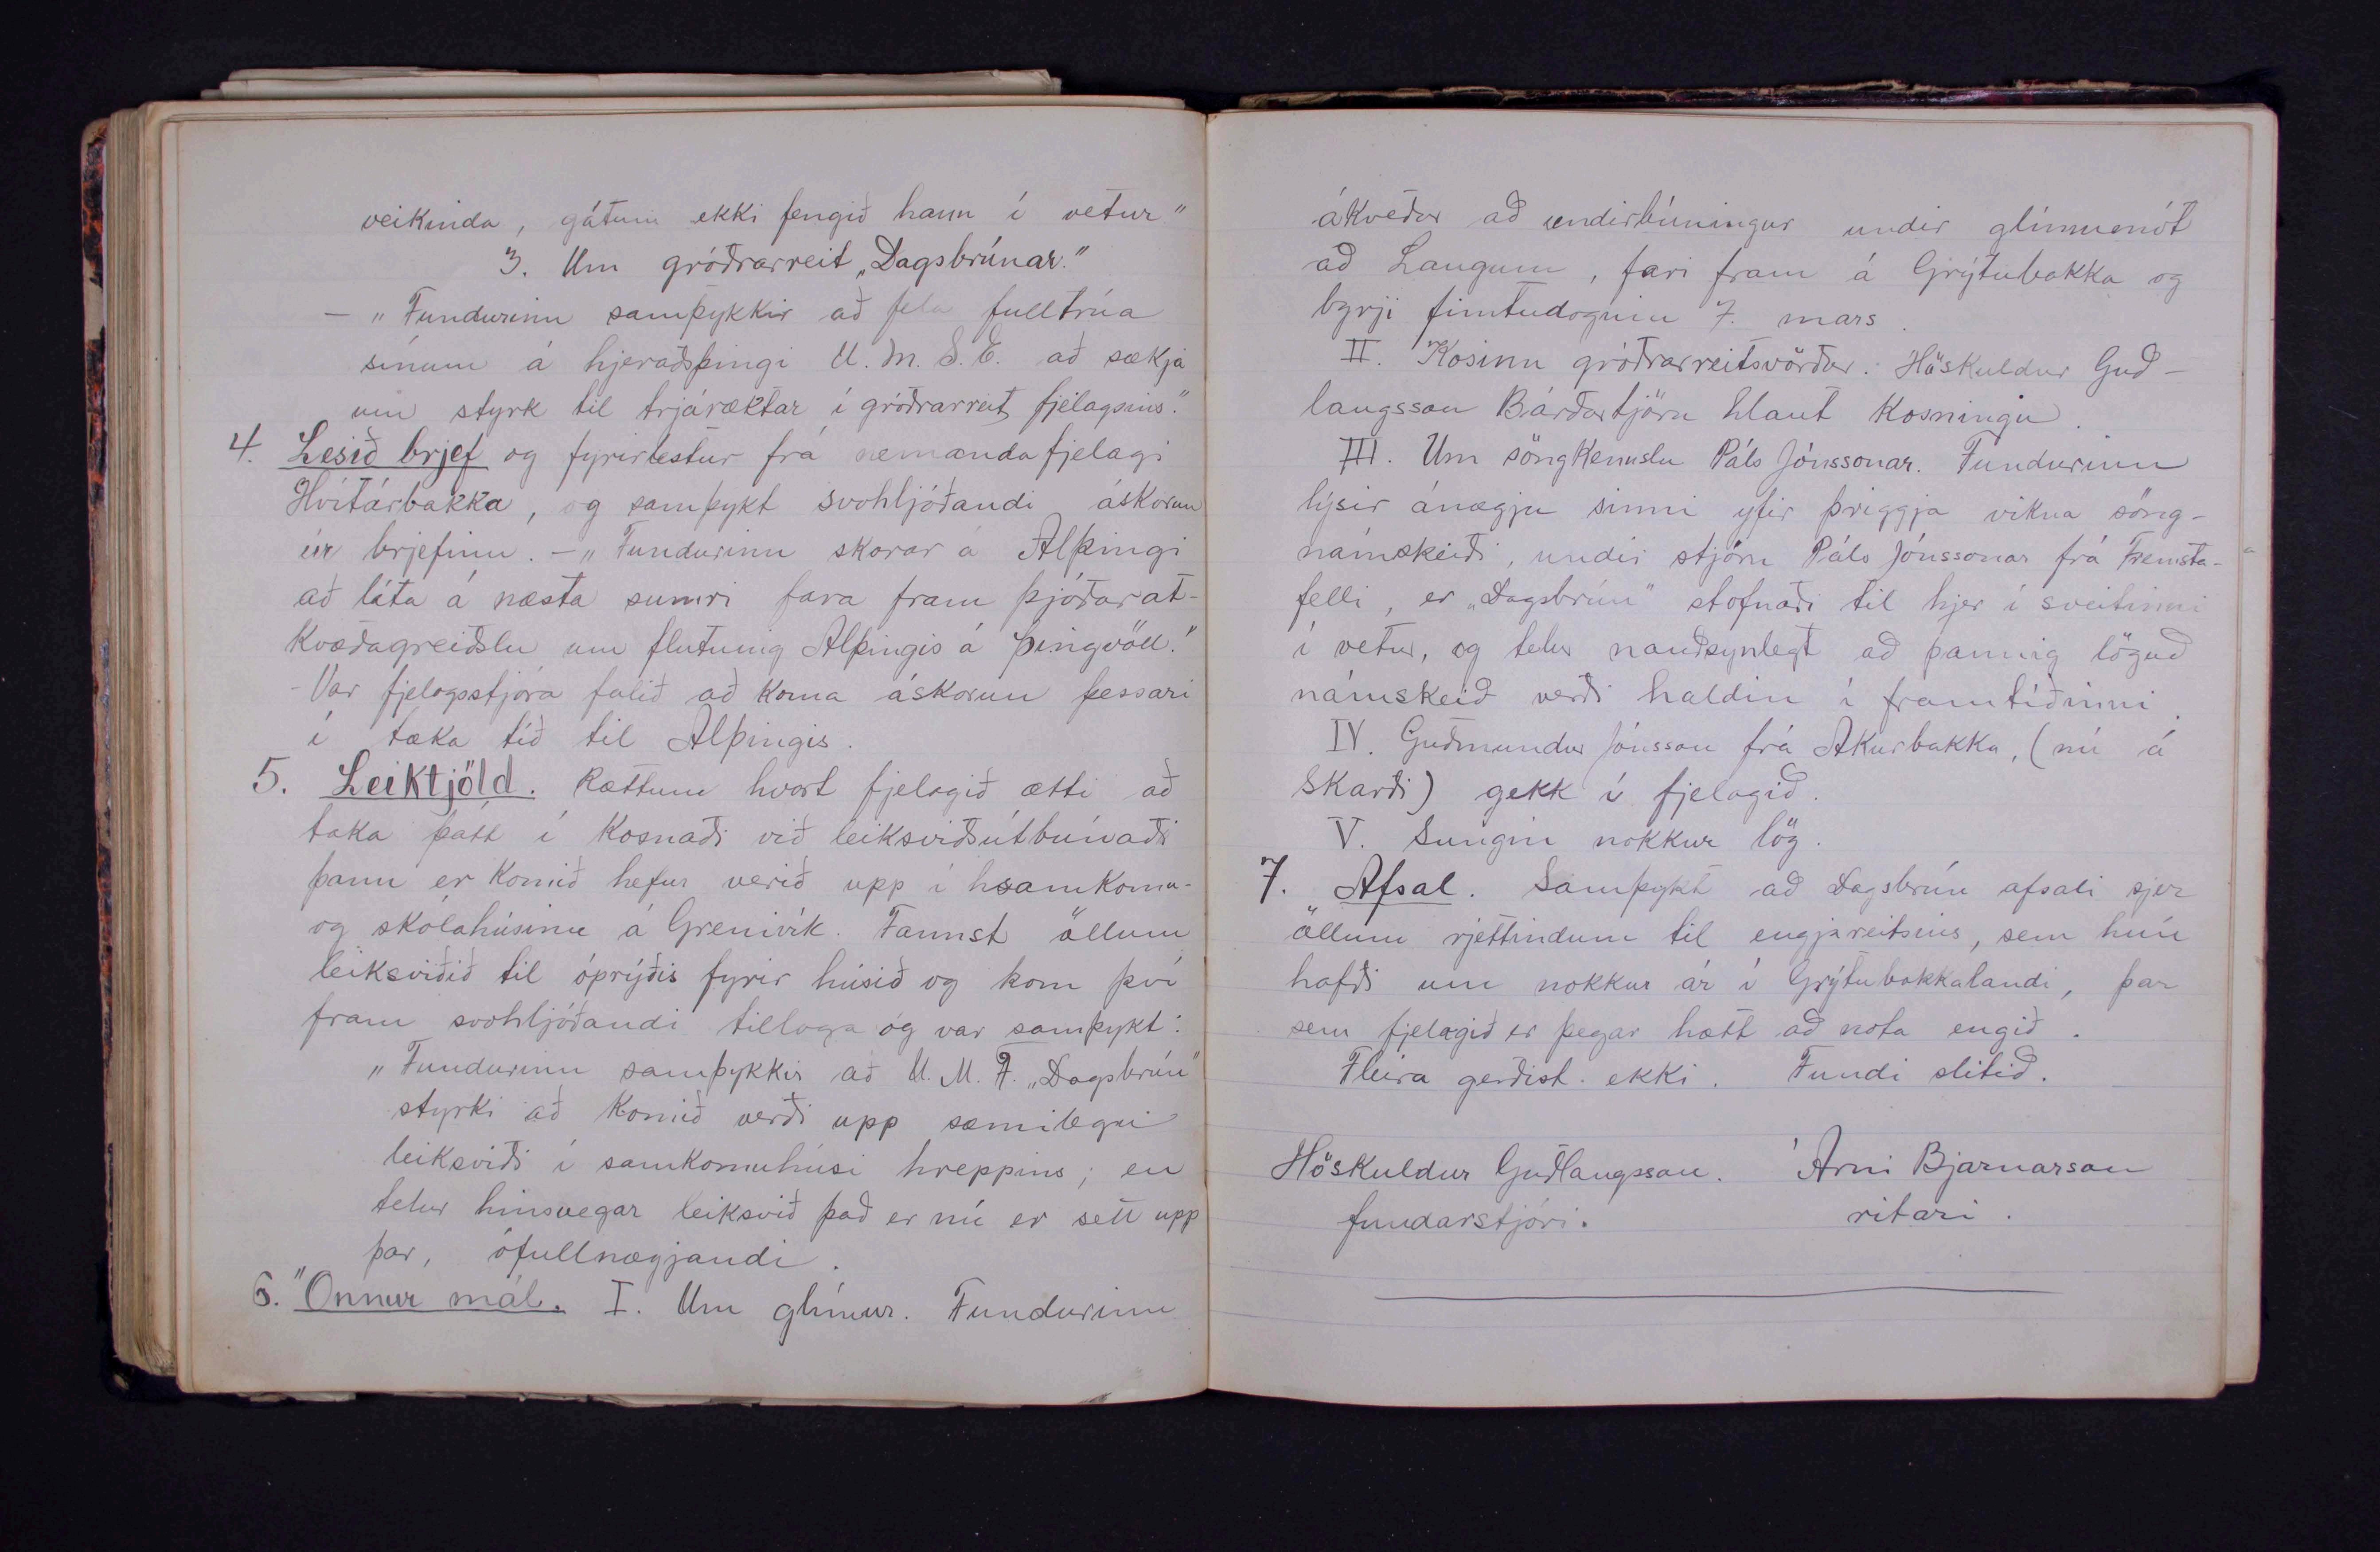 veikinda, gátum ekki fengið hann í vetur"
3. Um gróðrarreit „Dagsbrúnar."
– „Fundurinn samþykkir að fela fulltrúa
sínum á hjeraðsþingi U.M.S.E. að sækja
um styrk til trjáræktar í gróðrarreit fjelagsins."
4. Lesið brjef og fyrirlestur frá nemandafjelagi
Hvítárbakka, og samþykt svohljóðandi áskorun
úr brjefinu. – „Fundurinn skorar á Alþingi
að láta á næsta sumri fara fram þjóðarat-
kvæðagreiðslu um flutning Alþingis á Þingvöll."
- Var fjelagsstjóra falið að koma áskorun þessari
í tæka tíð til Alþingis.
5. Leiktjöld. Rættum hvort fjelagið ætti að
taka þátt í kosnaði við leiksviðsútbúnaði
þann er komið hefur verið upp í hsamkomu-
og skólahúsinu á Grenivík. Fannst öllum
leiksviðið til óprýðis fyrir húsið og kom því
fram svohljóðandi tillaga og var samþykt:
„Fundurinn samþykkir að U.M.F. „Dagsbrún"
styrki að komið verði upp sæmilegri
leiksviði í samkomuhúsi hreppins; en
telur hinsvegar leiksvið það er nú er sett upp
þar, ófullnægjandi.
6. Önnur mál. I. Um glímur. Fundurinn
ákveður að undirbúningur undir glímumót
að Laugum, fari fram á Grýtubakka og
byrji fimtudaginn 7. mars.
II. Kosinn gróðrarreitsvörður: Höskuldur Guð-
laugsson Bárðartjörn hlaut kosningu.
III. Um söngkenslu Páls Jónssonar. Fundurinn
lýsir ánægju sinni yfir þriggja vikna söng-
námskeiði, undir stjórn Páls Jónssonar frá Fremsta-
felli, er „Dagsbrún" stofnaði til hjer í sveitinni
í vetur, og telur nauðsynlegt að þannig löguð
námskeið verði haldin í framtíðinni.
IV. Guðmundur Jónsson frá Akurbakka, (nú á
Skarði) gekk í fjelagið.
V. Sungin nokkur lög.
7. Afsal. Samþykt að Dagsbrún afsali sjer
öllum rjettindum til engjareitsins, sem hún
hafði um nokkur ár í Grýtubakkalandi, þar
sem fjelagið er þegar hætt að nota engið.
Fleira gerðist ekki. Fundi slitið.
Höskuldur Guðlaugsson. Árni Bjarnarson
fundarstjóri. ritari.